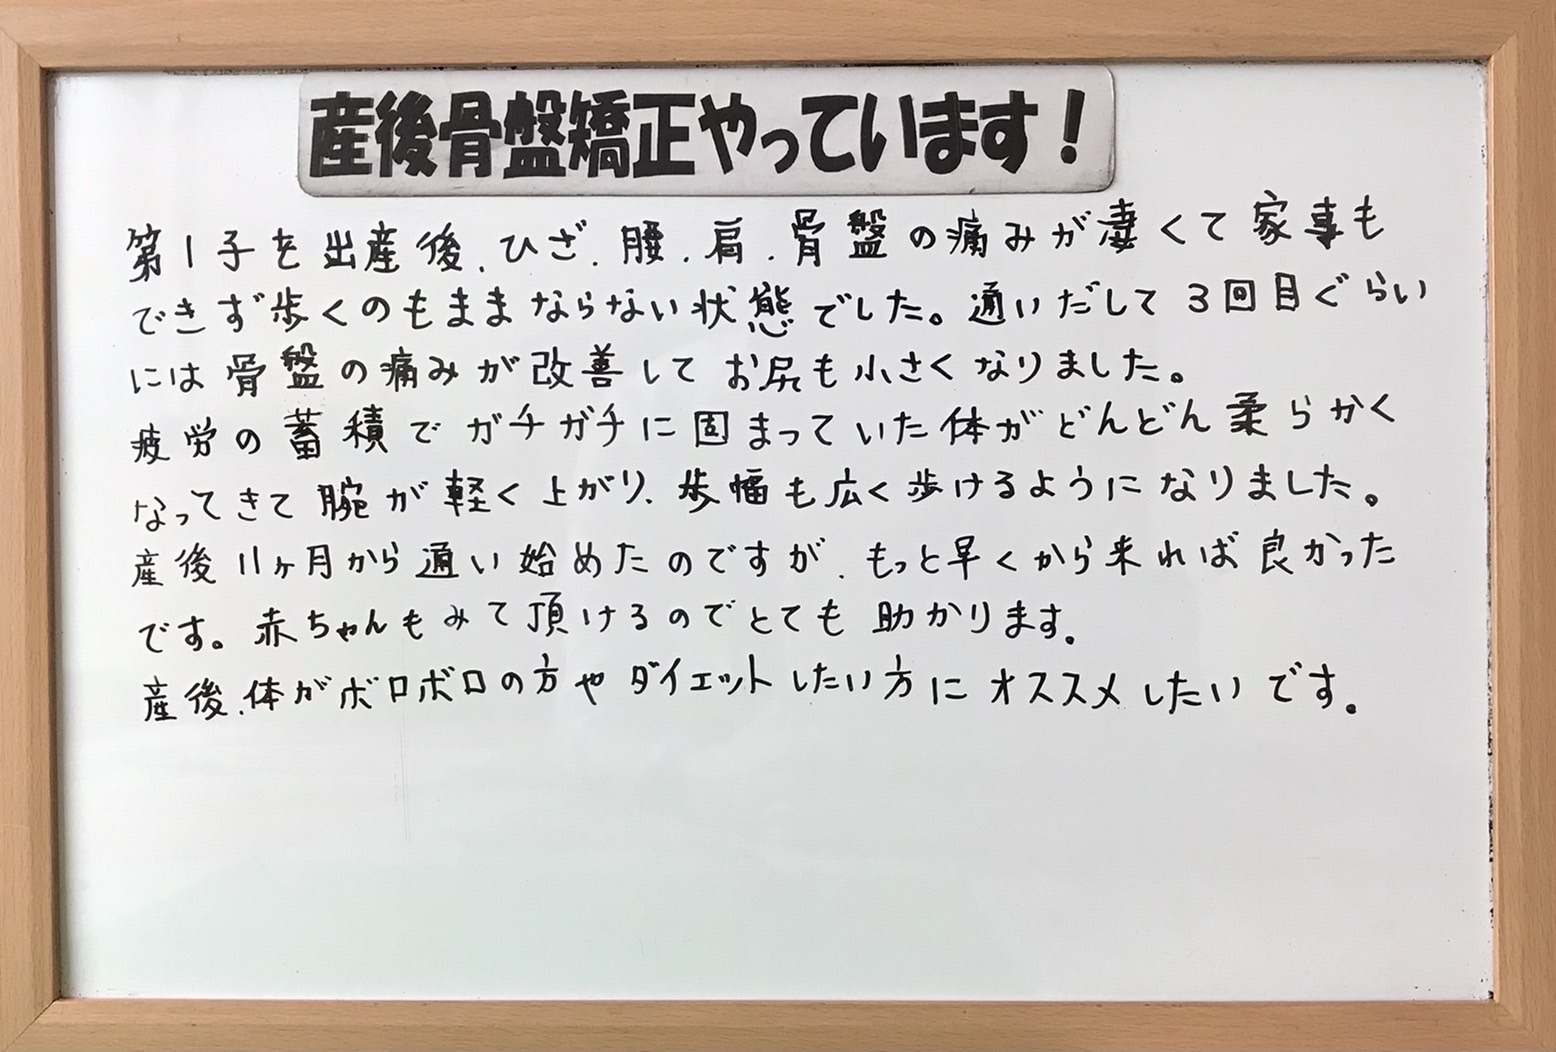 産後骨盤矯正やっています！
第1子を出産後、ひざ、腰、肩、骨盤の痛みが凄くて家事も
できず歩くのもままならない状態でした。通いだして3回目ぐらい
には骨盤の痛みが改善してお尻も小さくなりました。
疲労の蓄積でガチガチに固まっていた体がどんどん柔らかく
なってきて腕が軽く上がり、歩幅も広く歩けるようになりました。
産後11ヶ月から通い始めたのですが、もっと早くから来れば良かった
です。赤ちゃんもみて頂けるのでとても助かります。
産後、体がボロボロの方やダイエットしたい方にオススメしたいです。